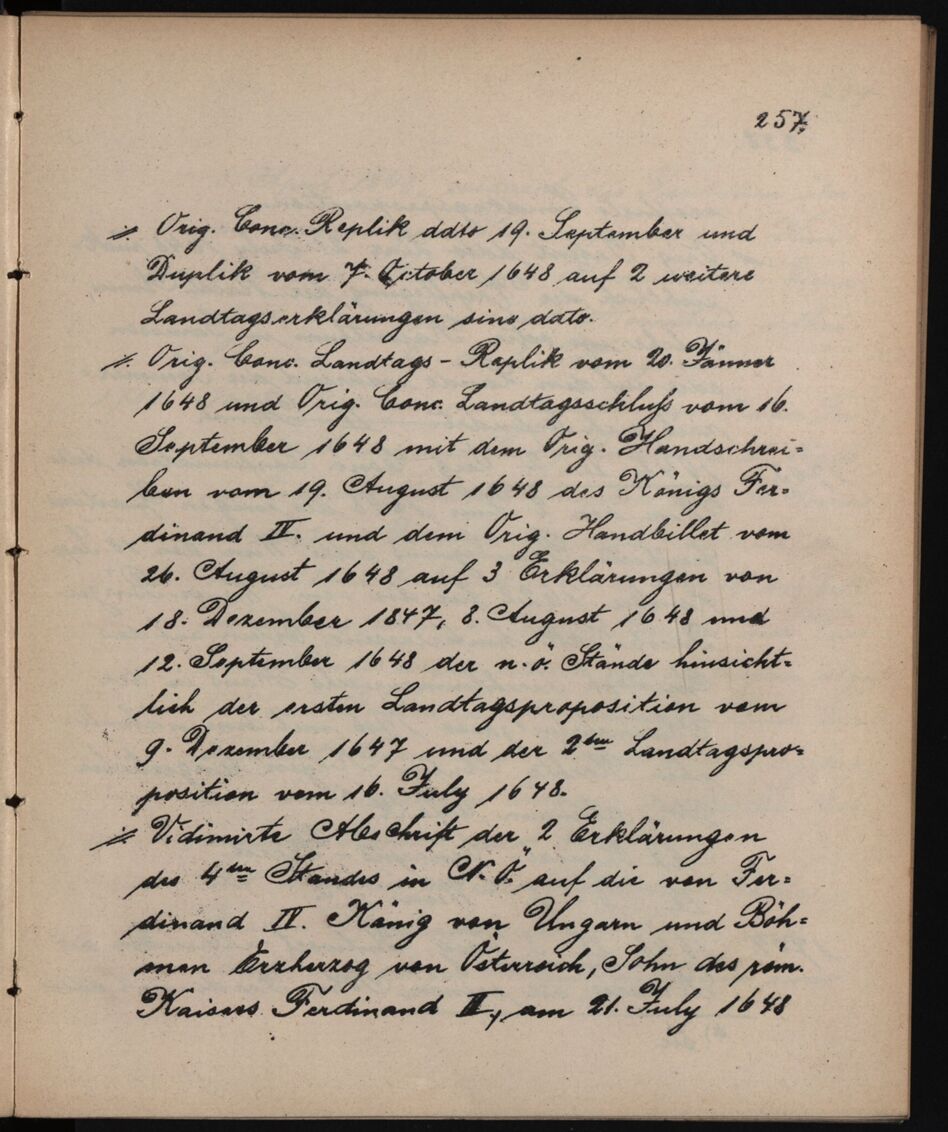 257.
·/. Orig. Conc. Replik ddto 19. September und
Duplik vom 7. October 1648 auf 2 weitere
Landtagserklärungen sine ddto.
·/. Orig. Conc. Landtags - Replik vom 20. Jänner
1648 und Orig. Conc. Landtagsschluß vom 16.
September 1648 mit dem Orig. Handschrei=
ben vom 19. August 1648 des Königs Fer=
dinand IV. und dem Orig. Handbillet vom
26. August 1648 auf 3 Erklärungen von
18. Dezember 1847, 8. August 1648 und
12. September 1648 der n.ö. Stände hinsicht=
lich der ersten Landtagsproposition vom
9. Dezember 1647 und der 2ten Landtagspro=
position vom 16. July 1648.
·/. Vidimirte Abschrift der 2 Erklärungen
des 4ten Standes in N.Ö. auf die von Fer=
dinand IV. König von Ungarn und Böh=
men Erzherzog von Österreich, Sohn des röm.
Kaisers Ferdinand II., am 21. July 1648